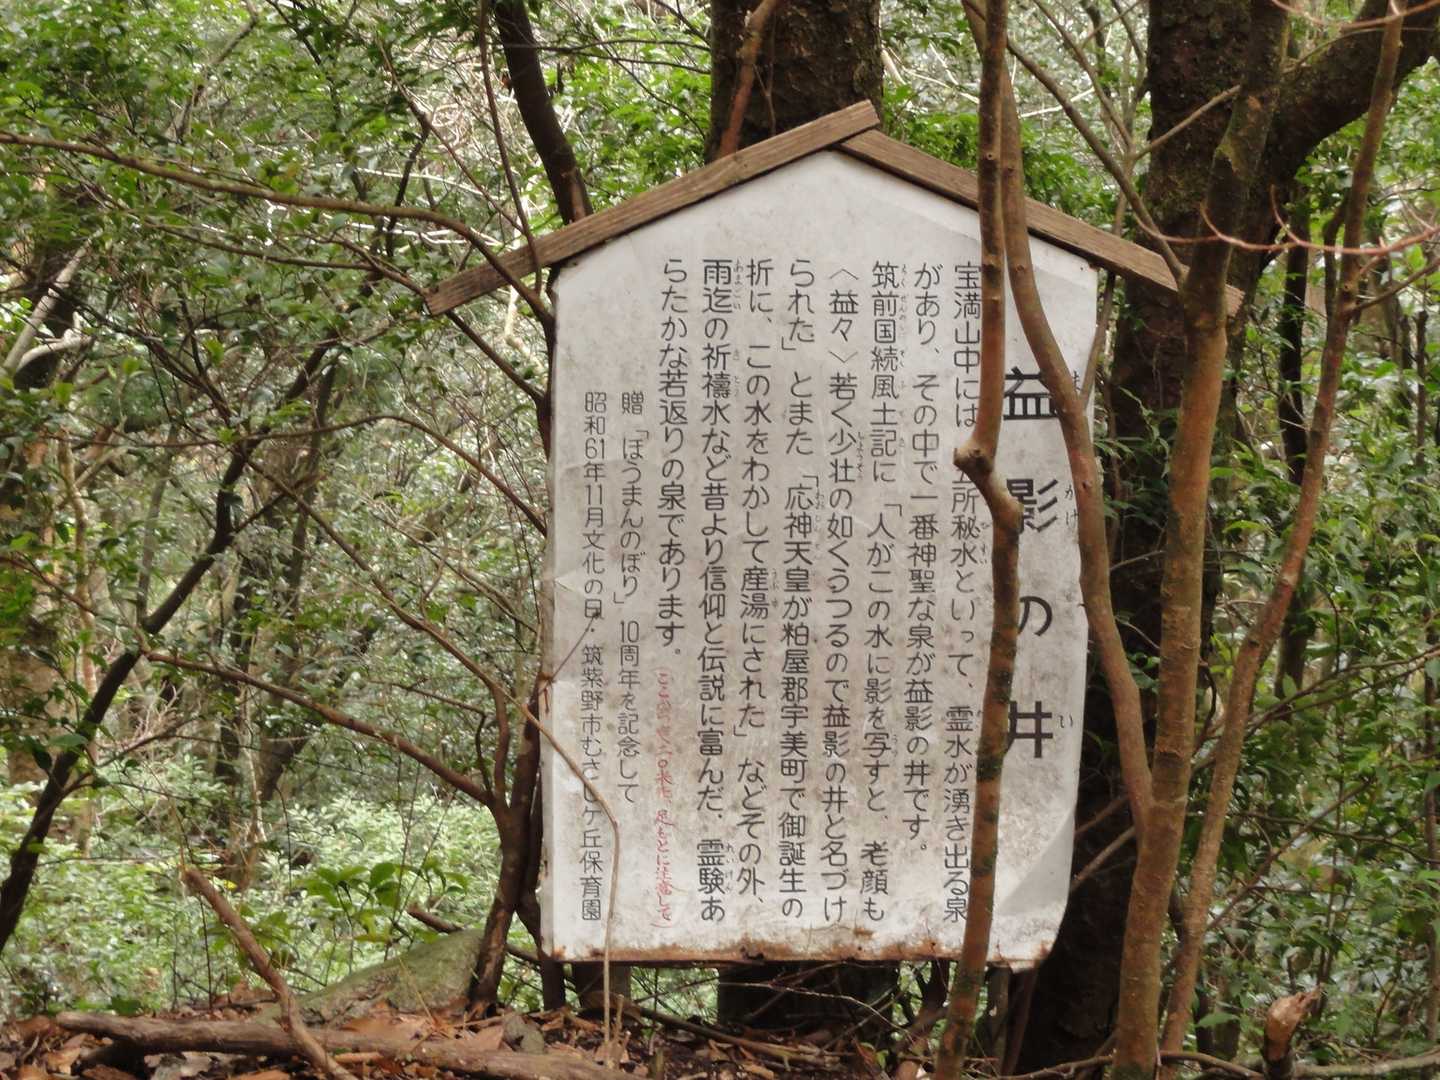 益影の井
宝満山中には五所秘水といって、霊水が湧き出る泉
があり、その中で一番神聖な泉が益影の井です。
筑前国続風土記に「人がこの水に影を写すと、老顔も
〈益々〉若く少壮の如くうつるので益影の井と名づけ
られた」とまた「応神天皇が粕屋郡宇美町で御誕生の
折に、この水をわかして産湯にされた」などその外、
雨迄の祈禱水など昔より信仰と伝説に富んだ、霊験あ
らたかな若返りの泉であります。
贈「ほうまんのぼり」10周年を記念して
昭和61年11月文化の日・筑紫野市むさしケ丘保育園
足もとに注意して)